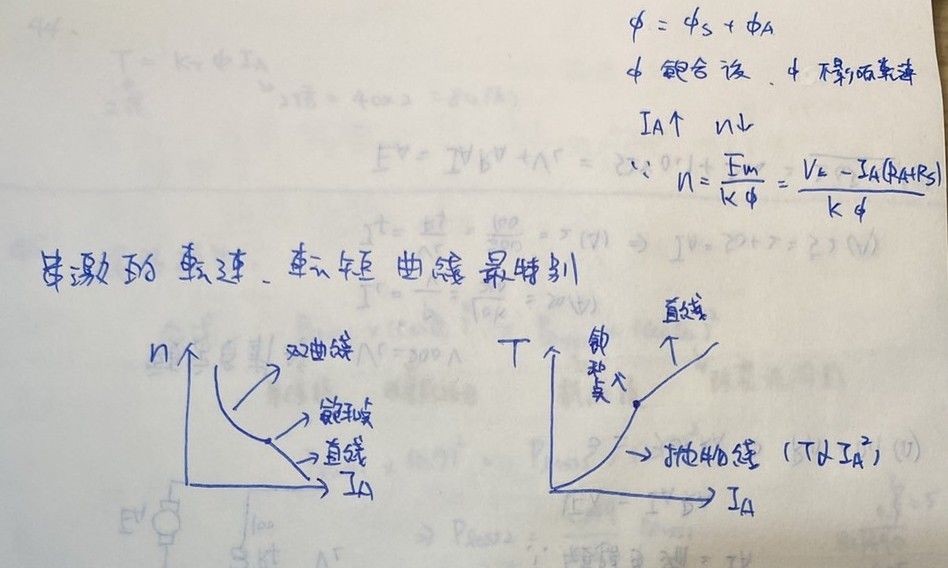 ϕ = ϕs + ϕA
ϕ 飽合後、ϕ 不影响転速
IA↑ n↓
∵ n = Em/Kϕ = (Vt - IA(RA+Rs))/Kϕ
串激的 転速、転矩 曲綫最特别
n
双曲綫
飽和点
直綫
IA
T
飽和点
直綫
抛物綫 (T∝IA²)
IA